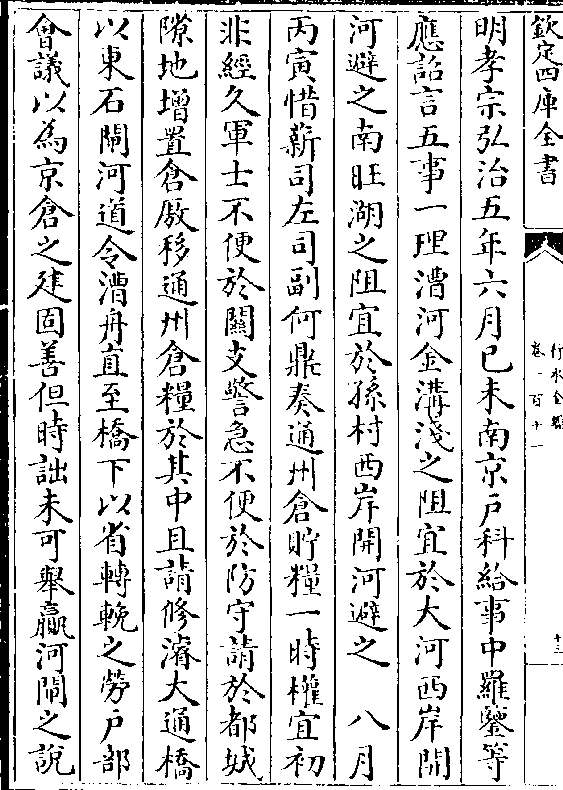 欽定四庫全書
行水金鑑
卷一百十一
十三
明孝宗弘治五年六月己未南京戶科給事中羅鑒等
應詔言五事一理漕河金溝淺之阻宜於大河西岸開
河避之南旺湖之阻宜於孫村西岸開河避之　八月
丙寅惜薪司左司副何鼎奏通州倉貯糧一時權宜初
非經久軍士不便於關支警急不便於防守請於都城
隙地增置倉厫移通州倉糧於其中且請修濬大通橋
以東石閘河道令漕舟直至橋下以省轉輓之勞戶部
會議以為京倉之建固善但時詘未可舉贏河閘之說